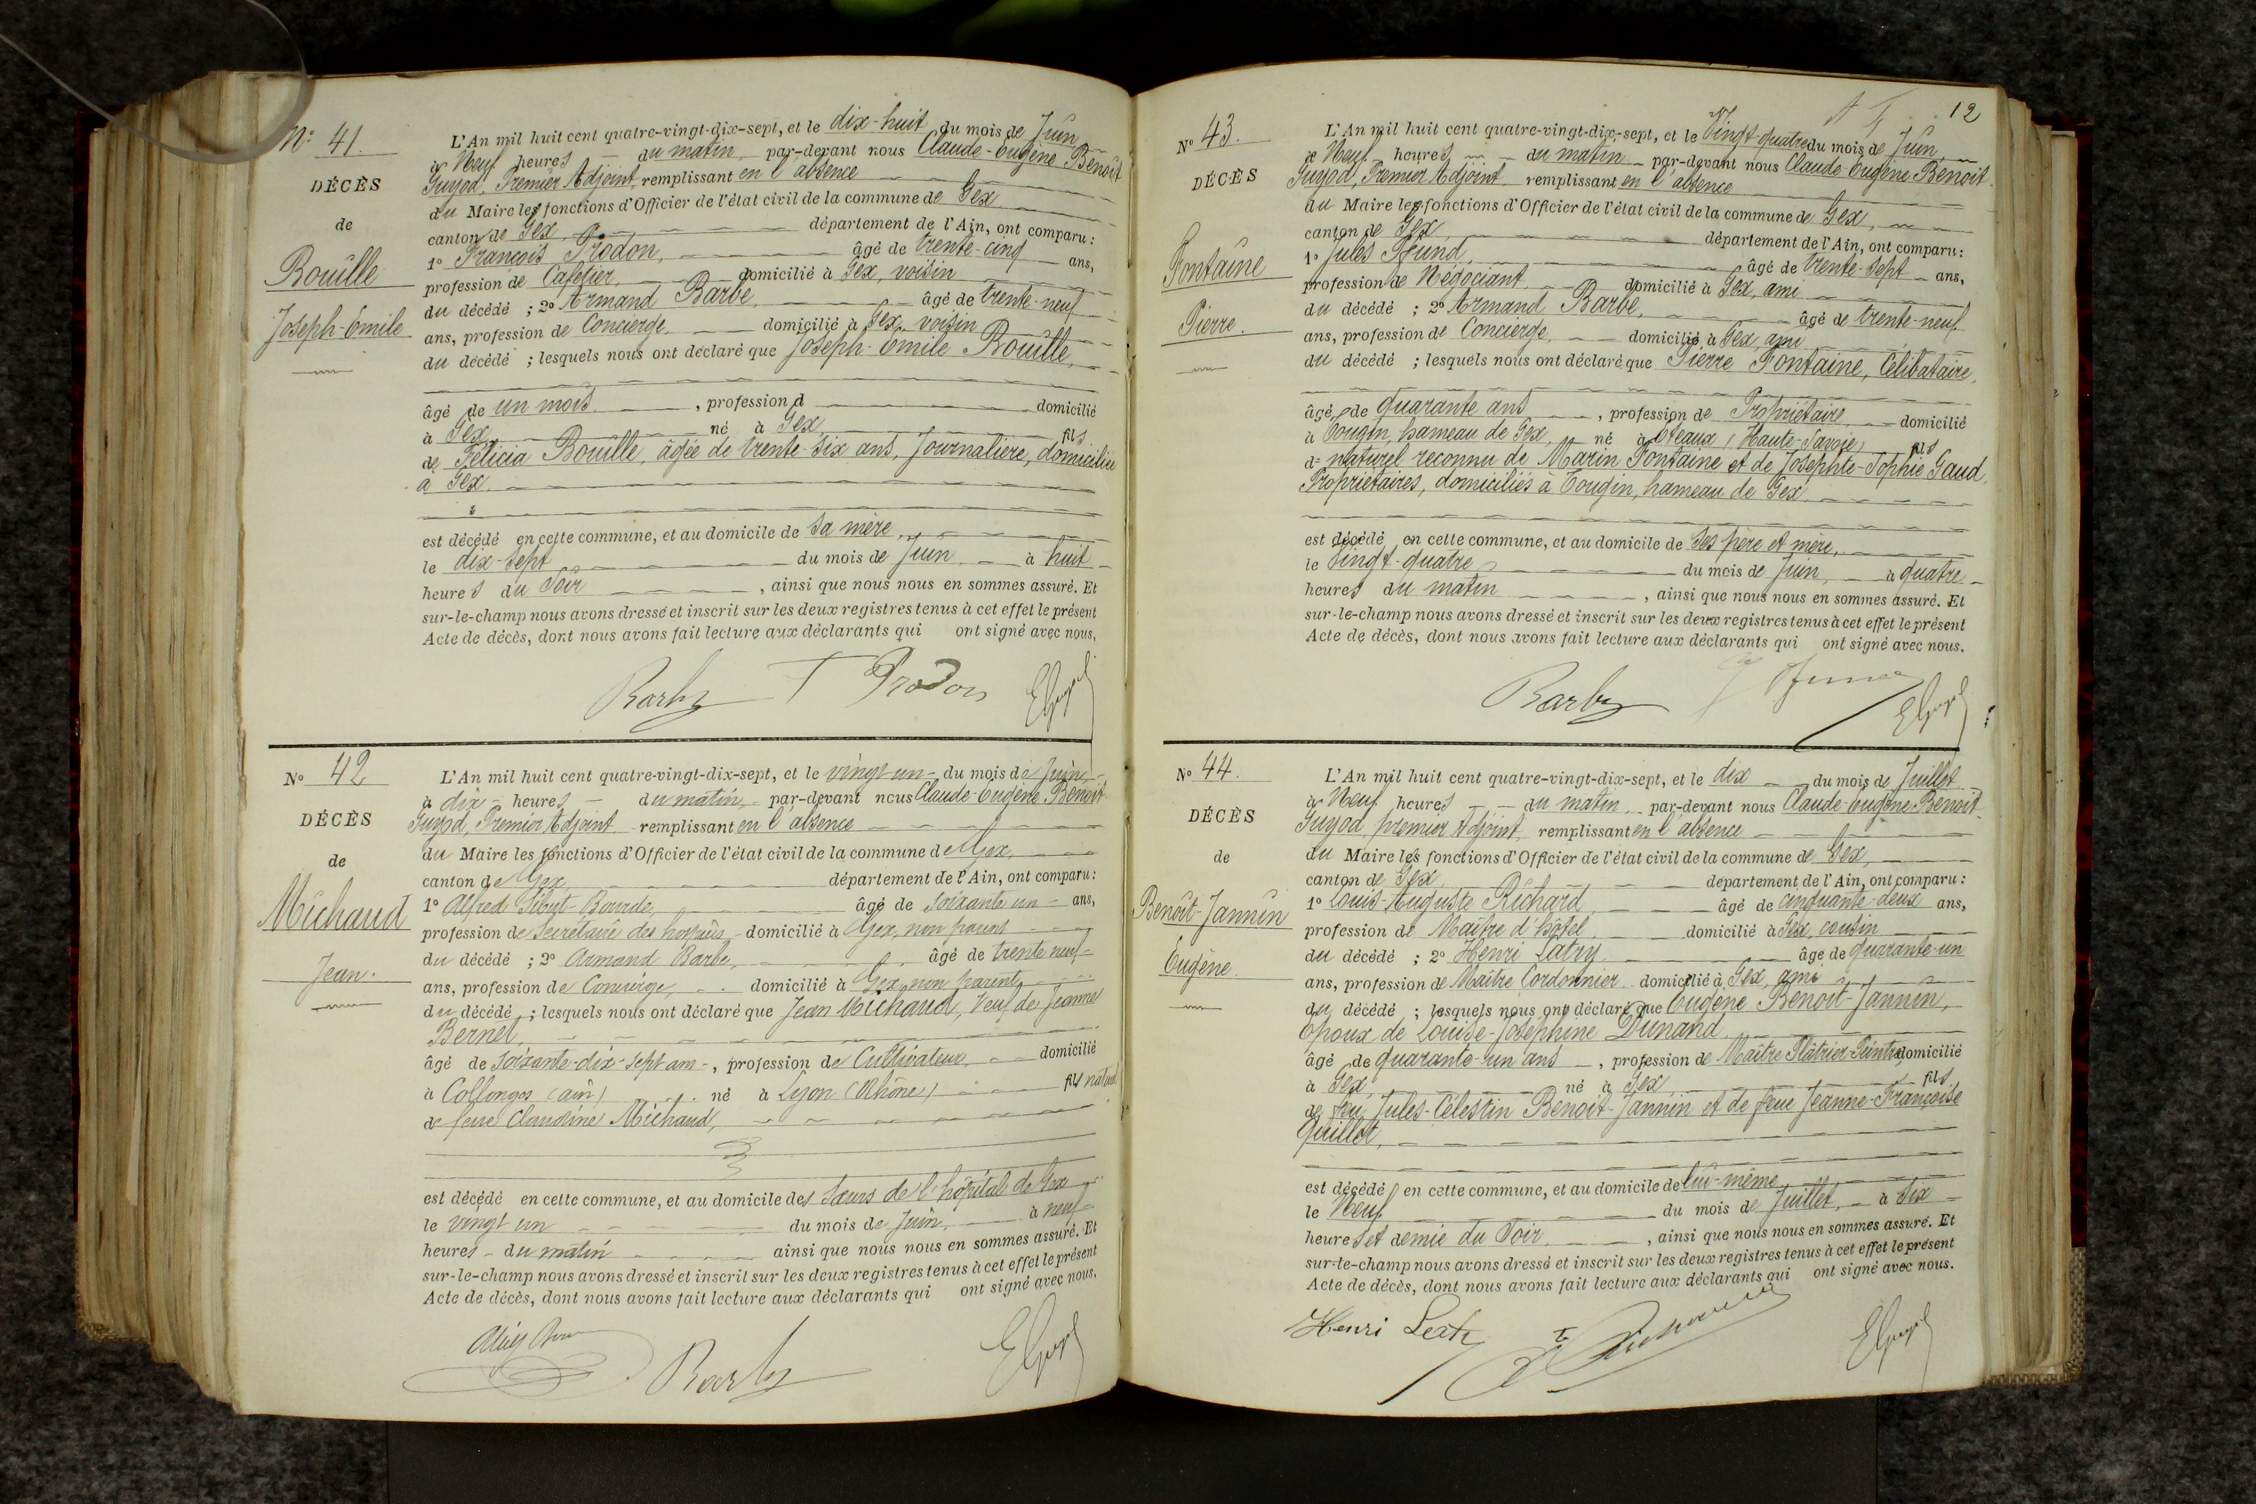 Nº 41.
DÉCÈS
de
Bouille
Joseph-Emile
L'An mil huit cent quatre-vingt-dix-sept, et le dix-huit du mois de Juin
à Neuf heures du matin par-devant nous Claude-Eugène-Benoît
Guyod, Premier Adjoint, remplissant en l'absence
du Maire les fonctions d'Officier de l'état civil de la commune de Gex
canton de Gex, département de l'Ain, ont comparu:
1º François Prodon, âgé de trente-cinq ans,
profession de Cafetier, domicilié à Gex, voisin
du décédé ; 2º Armand Barbe, âgé de trente-neuf
ans, profession de Concierge, domicilié à Gex, voisin
du décédé ; lesquels nous ont déclaré que Joseph-Emile Bouille,
âgé de un mois, profession d domicilié
à Gex né à Gex, fils
de Félicia Bouille, âgée de trente-six ans, Journalière, domiciliée
à Gex.
est décédé en cette commune, et au domicile de sa mère,
le dix-sept du mois de Juin à huit
heures du soir, ainsi que nous nous en sommes assuré. Et
sur-le-champ nous avons dressé et inscrit sur les deux registres tenus à cet effet le présent
Acte de décès, dont nous avons fait lecture aux déclarants qui ont signé avec nous.
Barbe F Prodon EGuyod
Nº 42
DÉCÈS
de
Michaud
Jean.
L'An mil huit cent quatre-vingt-dix-sept, et le vingt-un du mois de Juin
à dix heures du matin, par-devant nous Claude-Eugène Benoit
Guyod, Premier Adjoint remplissant en l'absence
du Maire les fonctions d'Officier de l'état civil de la commune de Gex,
canton de Gex, département de l'Ain, ont comparu:
1º Alfred âgé de soixante un ans,
profession de Secrétaire des hospices domicilié à Gex, non parent
du décédé ; 2º Armand Barbe, âgé de trente neuf
ans, profession de Concierge, domicilié à Gex, non parent
du décédé ; lesquels nous ont déclaré que Jean Michaud, Veuf de Jeanne
Bernet,
âgé de soixante-dix-sept ans, profession de Cultivateur domicilié
à Collonges (ain) né à Lyon (Rhône) fils naturel
de feue Claudine Michaud,
est décédé en cette commune, et au domicile des Sœurs de l'hôpital de Gex
le vingt un du mois de Juin, à neuf
heures du matin ainsi que nous nous en sommes assuré. Et
sur-le-champ nous avons dressé et inscrit sur les deux registres tenus à cet effet le présent
Acte de décès, dont nous avons fait lecture aux déclarants qui ont signé avec nous.
Barbe EGuyod
12
Nº 43.
DÉCÈS
de
Fontaine
Pierre.
L'An mil huit cent quatre-vingt-dix-sept, et le Vingt-quatre du mois de Juin
à Neuf heures du matin par-devant nous Claude-Eugène Benoit
Guyod, Premier Adjoint remplissant en l'absence
du Maire les fonctions d'Officier de l'état civil de la commune de Gex,
canton de Gex département de l'Ain, ont comparu:
1º Jules Pfund, âgé de trente-sept ans,
profession de Négociant domicilié à Gex, ami
du décédé ; 2º Armand Barbe, âgé de trente-neuf
ans, profession de Concierge, domicilié à Gex, ami
du décédé ; lesquels nous ont déclaré que Pierre Fontaine, Célibataire,
âgé de quarante ans, profession de Propriétaire domicilié
à Tougin, hameau de Gex, né à (Haute-Savoie) fils
d= naturel reconnu de Marin Fontaine et de Josephte-Sophie Gaud,
Propriétaires, domiciliés à Tougin, hameau de Gex
est décédé en cette commune, et au domicile de ses père et mère,
le Vingt-quatre du mois de Juin, à quatre
heures du matin, ainsi que nous nous en sommes assuré. Et
sur-le-champ nous avons dressé et inscrit sur les deux registres tenus à cet effet le présent
Acte de décès, dont nous avons fait lecture aux déclarants qui ont signé avec nous.
Barbe J Pfund EGuyod
Nº 44.
DÉCÈS
de
Benoît-Jannin
Eugène.
L'An mil huit cent quatre-vingt-dix-sept, et le dix du mois de Juillet
à Neuf heures du matin par-devant nous Claude-Eugène-Benoit
Guyod premier Adjoint, remplissant en l'absence
du Maire les fonctions d'Officier de l'état civil de la commune de Gex,
canton de Gex département de l'Ain, ont comparu:
1º Louis-Auguste Richard âgé de cinquante-deux ans,
profession de Maître d'hôtel domicilié à Gex, cousin
du décédé ; 2º Henri Latry âgé de quarante-un
ans, profession de Maître Cordonnier domicilié à Gex, ami
du décédé ; lesquels nous ont déclaré que Eugène Benoit-Jannin,
Epoux de Louise-Joséphine Dunand
âgé de quarante-un ans, profession de Maître Plâtrier-Peintre, domicilié
à Gex, né à Gex fils
de feu Jules-Célestin Benoit-Jannin et de feue Jeanne-Françoise
Quillot,
est décédé en cette commune, et au domicile de lui-même
le Neuf du mois de Juillet, à six
heures et demie du soir, ainsi que nous nous en sommes assuré. Et
sur-le-champ nous avons dressé et inscrit sur les deux registres tenus à cet effet le présent
Acte de décès, dont nous avons fait lecture aux déclarants qui ont signé avec nous.
Henri EGuyod